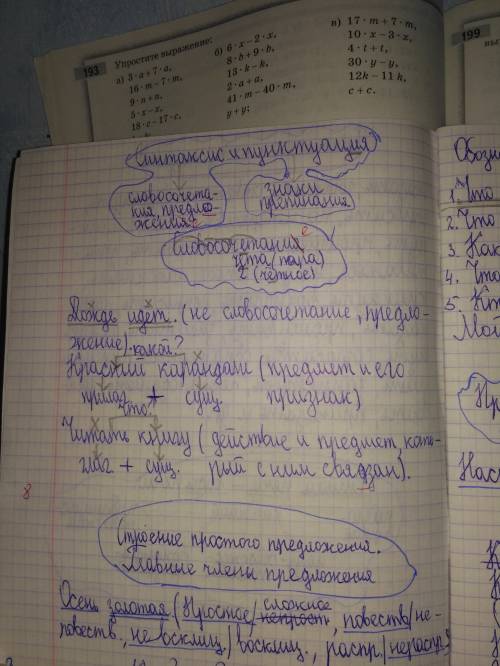 193
Упростите выражение:
а) 3·a + 7·a,
16·m − 7·m,
9·n + n,
5·x − x,
18·c − 17·c,
б) 6·x − 2·x,
8·b + 9·b,
13·k − k,
2·a + a,
41·m − 40·m,
y + y;
в) 17·m + 7·m,
10·x − 3·x,
4·t + t,
30·y − y,
12k − 11k,
c + c.
199
Синтаксис и пунктуация
словосочета-
ния, предло-
жения
знаки
препинания
Словосочетание
чета (пара)
2 (чётное)
Дождь идёт. (не словосочетание, предло-
жение).
какой?
Красный карандаш (предмет и его
прилаг + сущ. признак)
что?
Читать книгу (действие и предмет, кото-
глаг + сущ. рый с ним связан).
8
Строение простого предложения.
Главные члены предложения
сложное
Осень золотая (Простое/непрост, повеств/не-
повеств., не восклиц./восклиц., распр./нераспр.
1. Что
2. Что
3. Как
4. Что
5.